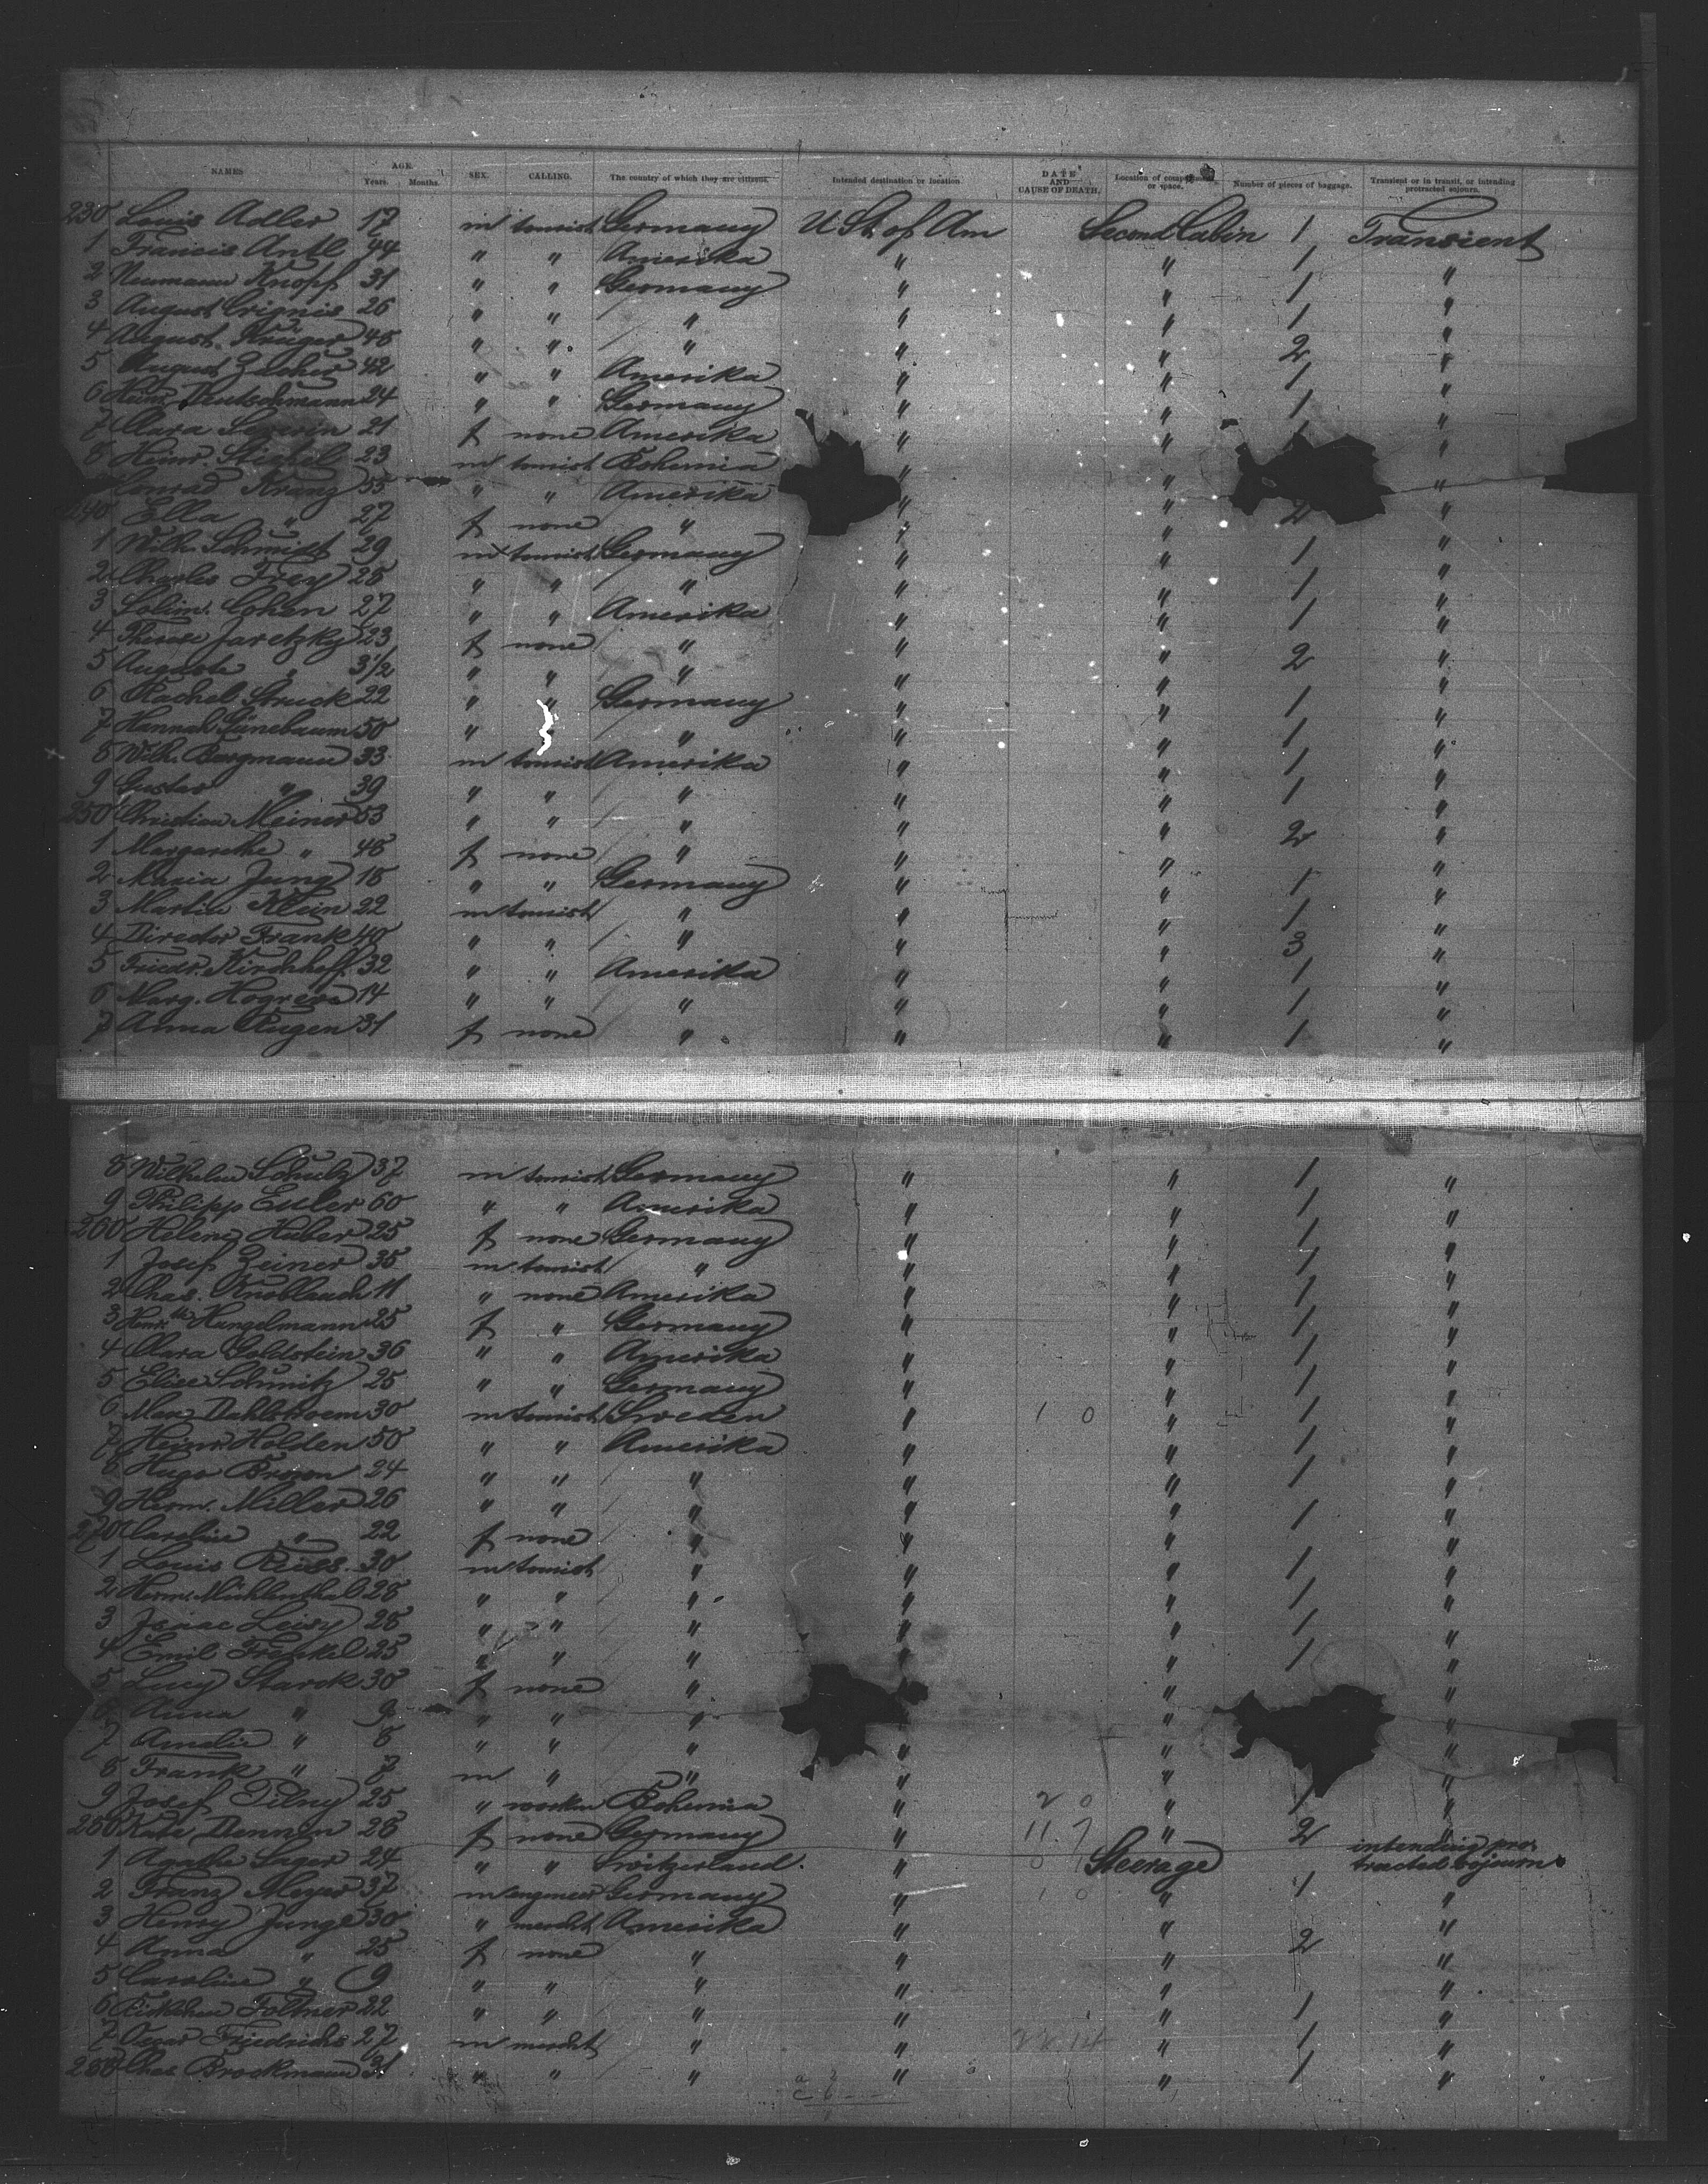 NAMES AGE. Years. Months. SEX. CALLING. The country of which they are citizens. Intended destination or location DATE AND CAUSE OF DEATH. Location of compartment or space. Number of pieces of baggage. Transient or in transit, or intending protracted sojourn.
230 Louis Adler 17 m tourist Germany U St. of Am Second Cabin 1 Transient
1 Francis Antl 44 " " Amerika " " 1 "
2 Neumann Knopf 31 " " Germany " " 1 "
3 August 26 " " " " " 1 "
4 August Krüger 45 " " " " " 2 "
5 August Zacher 42 " " Amerika " " 1 "
6 Deutschmann 24 " " Germany " " 1 "
7 Clara 21 f none Amerika " " "
8 Heinr. 23 m tourist Bohemia " " "
Conrad Kranz 55 " " Amerika " "
240 Ella " 27 f none " " " 2 "
1 Wilh. Schmidt 29 m tourist Germany " " 1 "
2 Charles Frey 28 " " " " " 1 "
3 Cohen 27 " " Amerika " " 1 "
4 Jaretzky 23 f none " " " 2 "
5 Auguste " 3 1/2 " " " " " "
6 Rachel Struck 22 " " Germany " " 1 "
7 Hannah Günebaum 50 " " " " 1 "
8 Wilh. Bergmann 33 m tourist Amerika " " 1 "
9 Gustav " 39 " " " " " 1 "
250 Christian Meiner 53 " " " " " 2 "
1 Margarethe " 48 f none " " " "
2 Maria Jung 18 " " Germany " " 1 "
3 Martin Klein 22 m tourist " " " 1 "
4 Director Frank 40 " " " " " 3 "
5 Friedr. Kirchhoff 32 " " Amerika " " 1 "
6 Marg. Hogreve 14 " " " " " 1 "
7 Anna Rugen 31 f none " " " 1 "
8 Wilhelm Schultz 37 m tourist Germany " " 1 "
9 Philipp Euler 60 " " Amerika " " 1 "
260 Helene Huber 25 f none Germany " " 1 "
1 Josef Zeiner 35 m tourist " " " 1 "
2 Chas. Knoblauch 11 " none Amerika " " 1 "
3 Henr.tte Hungelmann 25 f " Germany " " 1 "
4 Clara Goldstein 36 " " Amerika " " 1 "
5 Elise Schmitz 25 " " Germany " " 1 "
6 Max Dahlstroem 30 m tourist Sweden " 1 0 " 1 "
7 Heinr. Holden 50 " " Amerika " " 1 "
8 Hugo Brown 24 " " " " " 1 "
9 Herm. Miller 26 " " " " " 1 "
270 Caroline " 22 f none " " " "
1 Louis Reiss 30 m tourist " " " 1 "
2 Herm. Mühlenthal 28 " " " " " 1 "
3 Isaac Levy 28 " " " " " 1 "
4 Emil Frenkel 25 " " " " " 1 "
5 Lucy Starck 30 f none " " " "
6 Anna " 9 " " " " "
7 Amalie " 8 " " " " " "
8 Frank " 7 m " " " " "
9 Josef Tilny 25 " Bohemia " 2 0 " 1 "
280 Kate Dennen 28 f none Germany " 11.7 " 2 "
1 Agathe Sager 24 " " Switzerland. " Steerage intending protracted sojourn
2 Franz Meyer 37 m engineer Germany " 1 0 " 1 "
3 Henry Junge 30 " mercht Amerika " " "
4 Anna " 25 f none " " " 2 "
5 Caroline " 9 " " " " " "
6 Foltner 22 " " " " " 1 "
7 Oscar Friedrichs 27 m mercht " " " 1 "
288 Chas Brockmann 31 " " " " 1 "